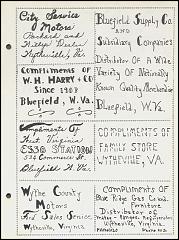 City Service
Motors
Packard and
Willys Dealer
Wytheville, Va.
Compliments of
W. H. Harry & Co
Since 1907
Bluefield, W. Va.
Compliments Of
West Virginia
526 Commerce St.
Bluefield W. Va.
Wythe County
Motors
Ford Sales Service
Wytheville, Virginia
Bluefield Supply Co.
and
Subsidiary Companies
Distributor Of A Wide
Variety Of Nationally
Known Quality Merchandise
Bluefield, W. Va.
COMPLIMENTS OF
FAMILY STORE
WYTHEVILLE, VA.
COMPLIMENTS OF
Blue Ridge Gas Co.
Distributors of
Wytheville, Virginia